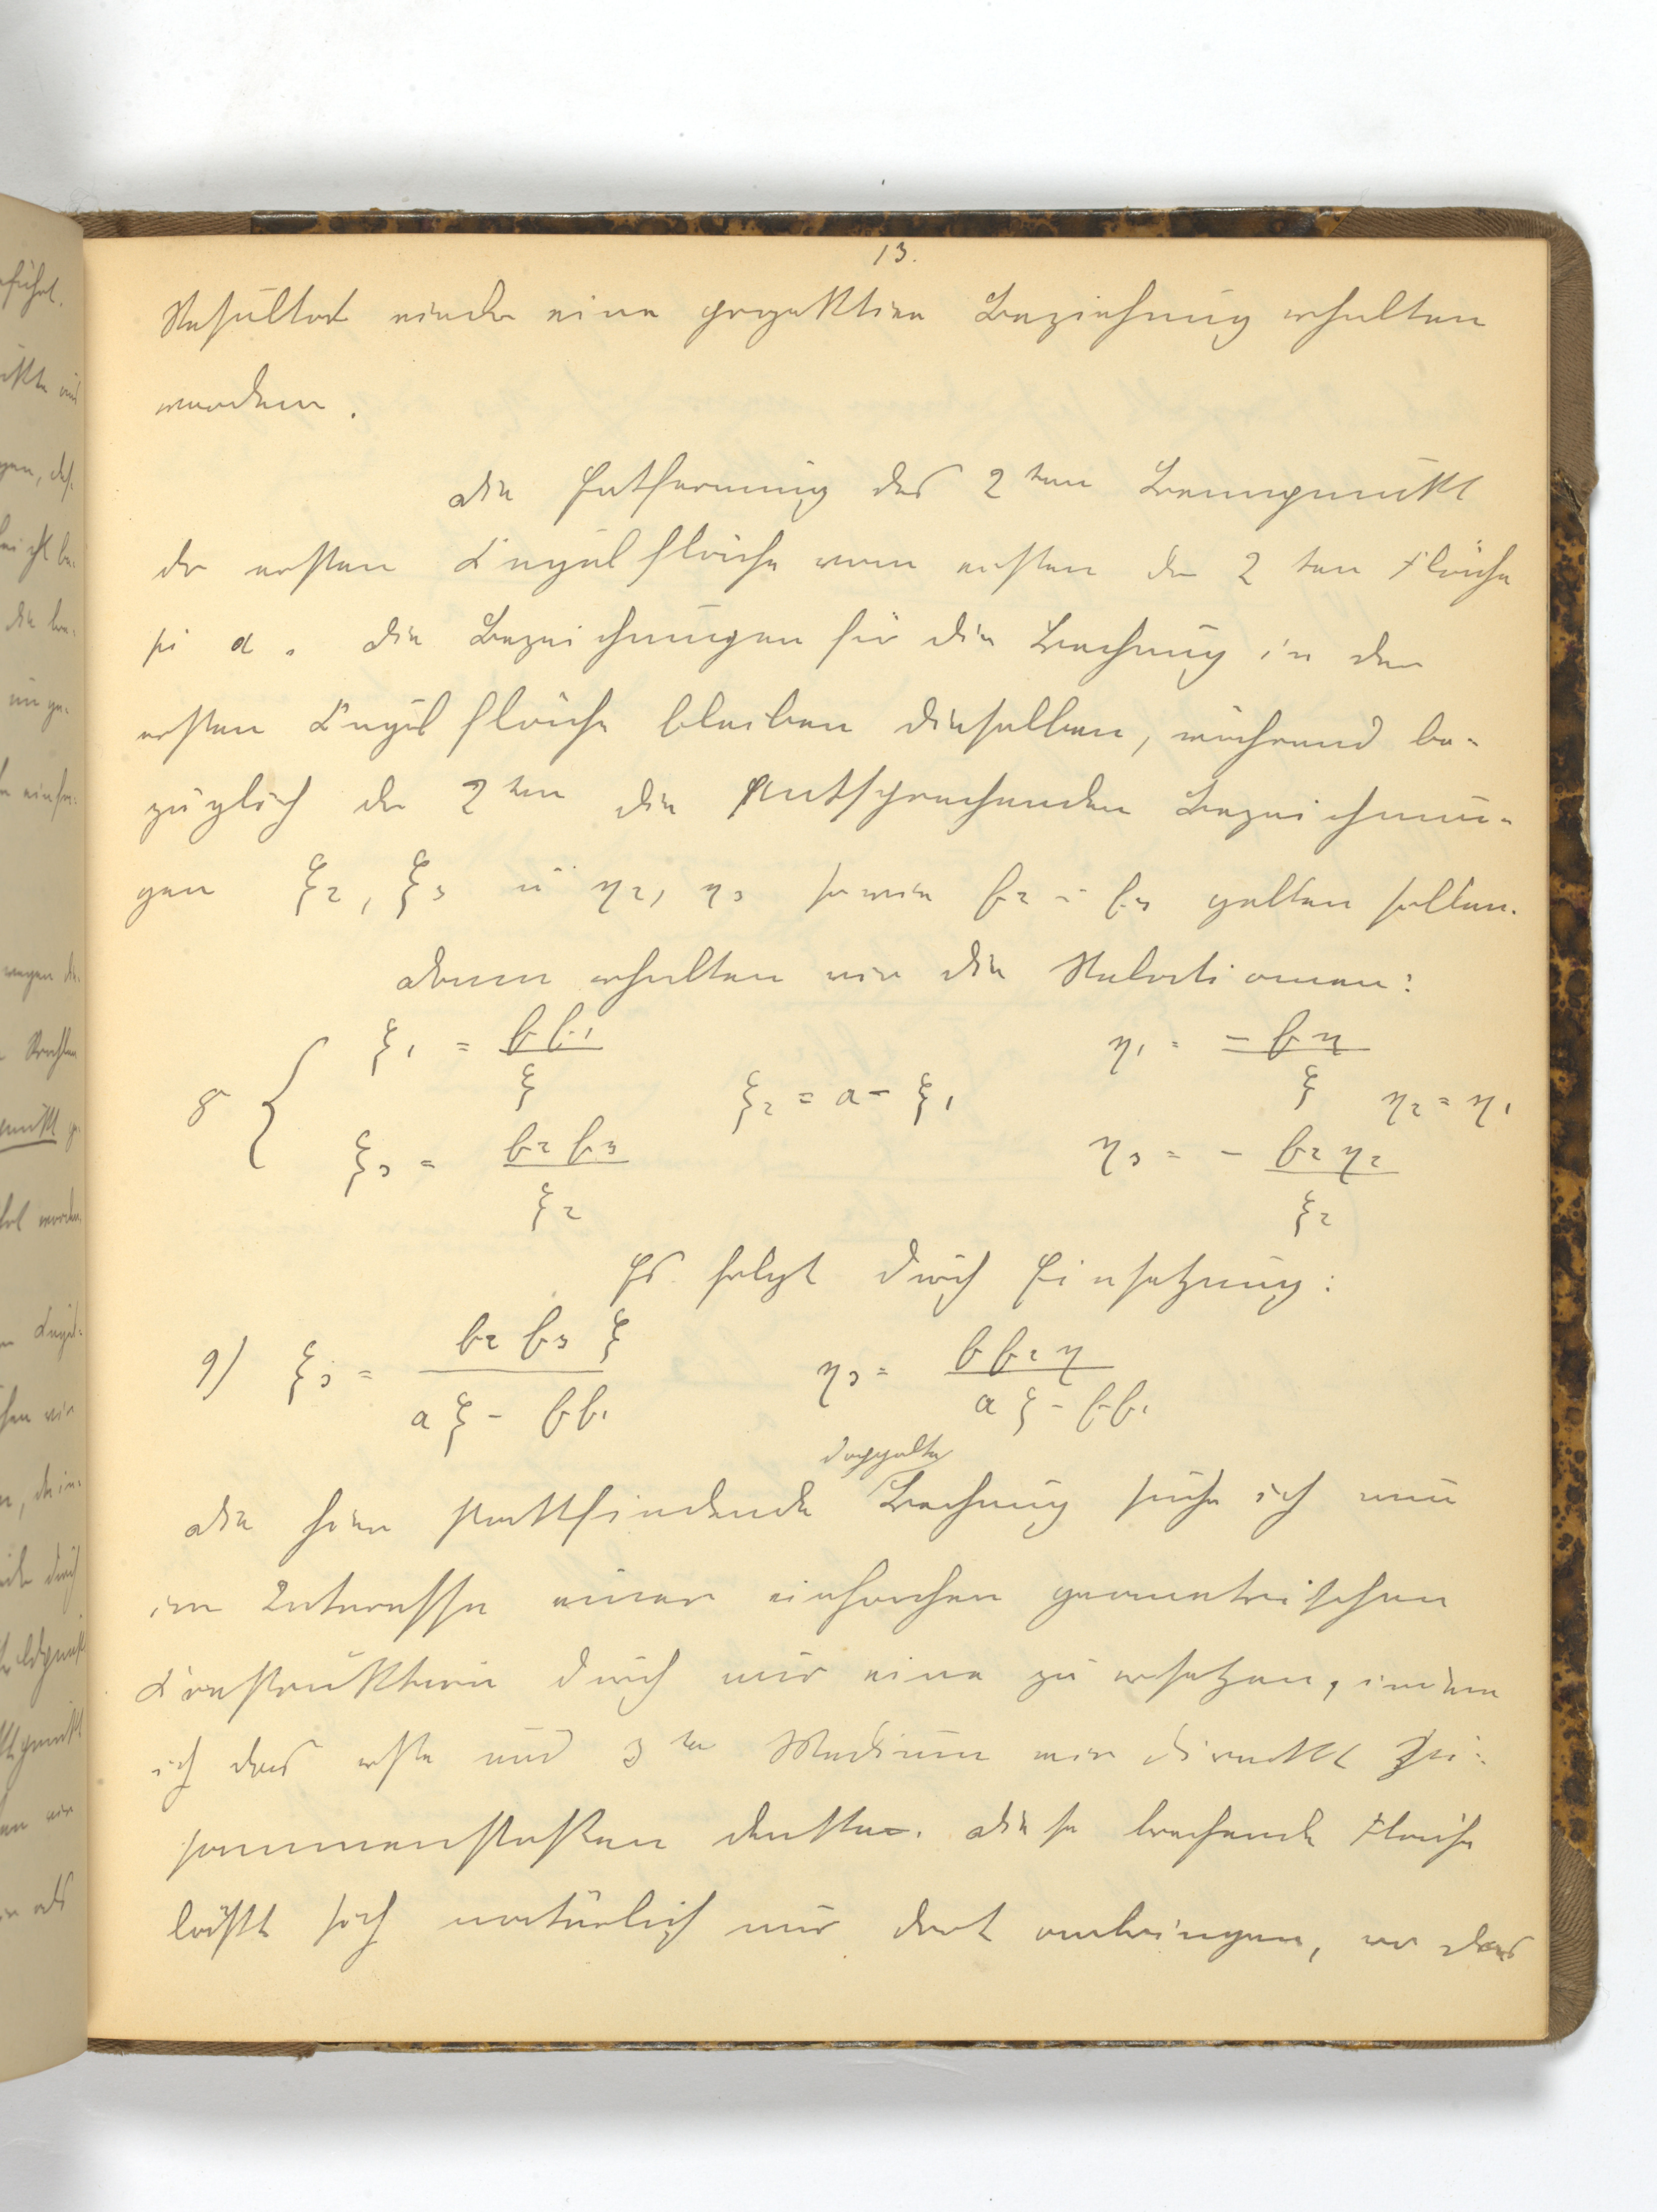 13.
Resultat wieder eine projektive Beziehung erhalten
werden.
Die Entfernung des 2ten Brennpunkt
der ersten Kugelfläche vom ersten der 2ten Fläche
sei a. Die Bezeichnungen für die Brechung in der
ersten Kugelfläche bleiben dieselben, während be-
züglich der 2ten die entsprechenden Bezeichnun-
gen ξ2, ξ3 u η2, η3 sowie f2 u f3 gelten sollen.
Dann erhalten wir die Relationen:
8 { ξ1 = f f1 / ξ ξ2 = a - ξ1 η1 = - f η / ξ η2 = η1
ξ3 = f2 f3 / ξ2 η3 = - f2 η2 / ξ2
Es folgt durch Einsetzung:
9) ξ3 = f2 f3 ξ / a ξ - f f1 η3 = f f2 η / a ξ - f f1
doppelte
Die hier stattfindende Brechung suche ich nun
im Interesse einer einfachen geometrischen
Konstruktion durch nur eine zu ersetzen, indem
ich das erste und 3te Medium mir direkt zu-
sammenstoßen denke. Diese brechende Fläche
läßt sich natürlich nur dort anbringen, wo das